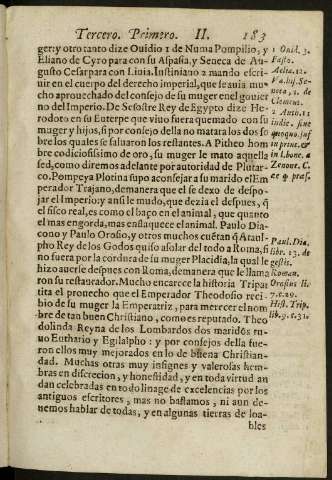 Tercero. Primero. II. 183
ger: y otro tanto dize Ouidio 1 de Numa Pompilio, y
Eliano de Cyro para con su Aspasia, y Seneca de Au-
gusto Cesar para con Liuia. Iustiniano 2 mando escri-
uir en el cuerpo del derecho imperial, que se auia mu-
cho aprouechado del consejo de su muger en el gouier
no del Imperio. De Sesostre Rey de Egypto dize He-
rodoto en su Euterpe que viuo fuera quemado con su
muger y hijos, si por consejo della no matara los dos so
bre los quales se saluaron los restantes. A Pitheo hom
bre codiciosissimo de oro, su muger le mato aquella
sed, como diremos adelante por autoridad de Plutar-
co. Pompeya Plotina supo aconsejar a su marido el Em
perador Trajano, demanera que el se dexo de despo-
jar el Imperio: y ansi le mudo, que dezia el despues, q̃
el fisco real, es como el baço en el animal, que quanto
el mas engorda, mas enflaquece el animal. Paulo Dia-
cono y Paulo Orosio, y otros muchos cuẽtan q̃ Ataul-
pho Rey de los Godos quiso asolar del todo a Roma, si
no fuera por la cordura de su muger Placidia, la qual le
hizo auerse despues con Roma, demanera que le llama
ron su restaurador. Mucho encarece la historia Tripar
tita el prouecho que el Emperador Theodosio reci-
bio de su muger la Emperatriz, para merecer el nom
bre de tan buen Christiano, como es reputado. Theo
dolinda Reyna de los Lombardos dos maridos tu-
uo Euthario y Egilalpho: y por consejo della fue-
ron ellos muy mejorados en lo de buena Christian-
dad. Muchas otras muy insignes y valerosas hem-
bras en discrecion, y honestidad, y en toda virtud an
dan celebradas en todo linage de excelencias por los
antiguos escritores, mas no bastamos, ni aun de-
uemos hablar de todas, y en algunas tierras de loa-
bles
1 Ouid. 3.
Fasto.
Aelia. 12.
Va. hij. Se-
neca, 1. de
Clemen.
2 Auto. 11
indic. sine
quoqu. suf
in prine. er
in l. bone. a
Zenone. C.
er q pres.
Paul. Dia.
lib. 13. de
gestis.
Roman.
Orosius li.
7. c. 29.
Hist. Trip.
lib. 9. c. 31.